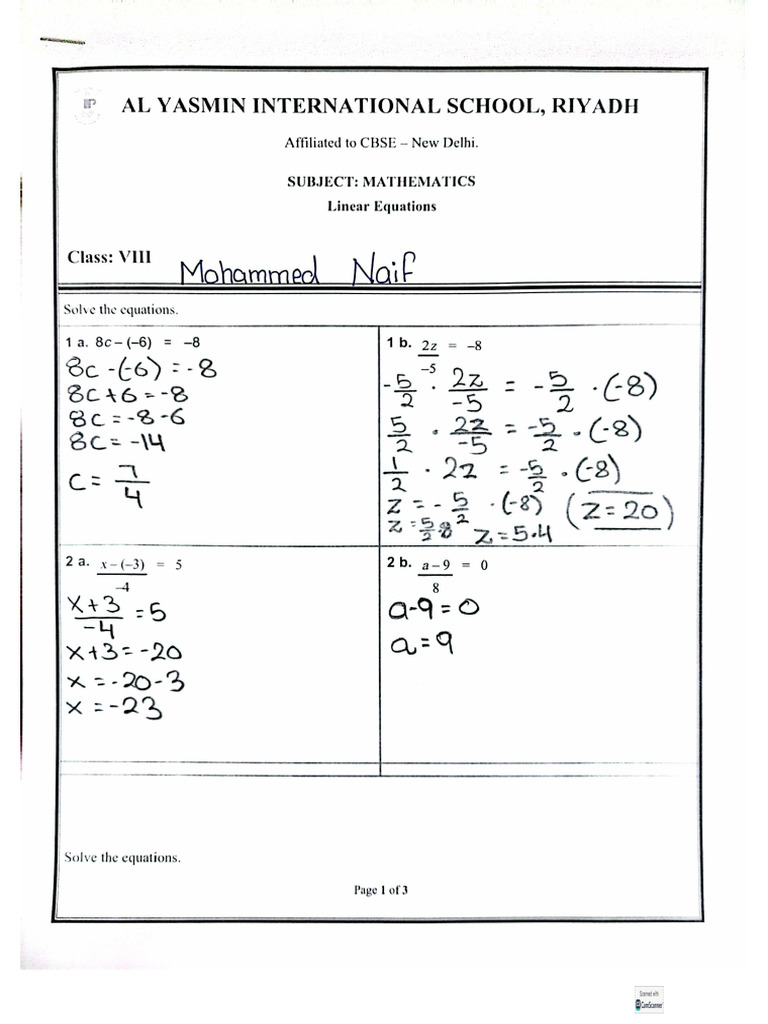 AL YASMIN INTERNATIONAL SCHOOL, RIYADH
Affiliated to CBSE – New Delhi.
SUBJECT: MATHEMATICS
Linear Equations
Class: VIII Mohammed Naif
Solve the equations.
1 a. 8c – (–6) = –8
8c -(-6) = -8
8c+6=-8
8c = -8-6
8c = -14
c = 7/4
1 b. 2z/–5 = –8
-5/2 · 2z/-5 = -5/2 · (-8)
5/2 · 2z/-5 = -5/2 · (-8)
1/2 · 2z = -5/2 · (-8)
z = -5/2 · (-8) (z = 20)
z = 5/2 8 z = 5·4
2 a. x – (–3)/–4 = 5
x+3/-4 = 5
x+3 = -20
x = -20-3
x = -23
2 b. a – 9/8 = 0
a-9=0
a=9
Solve the equations.
Page 1 of 3
Scanned with
CamScanner